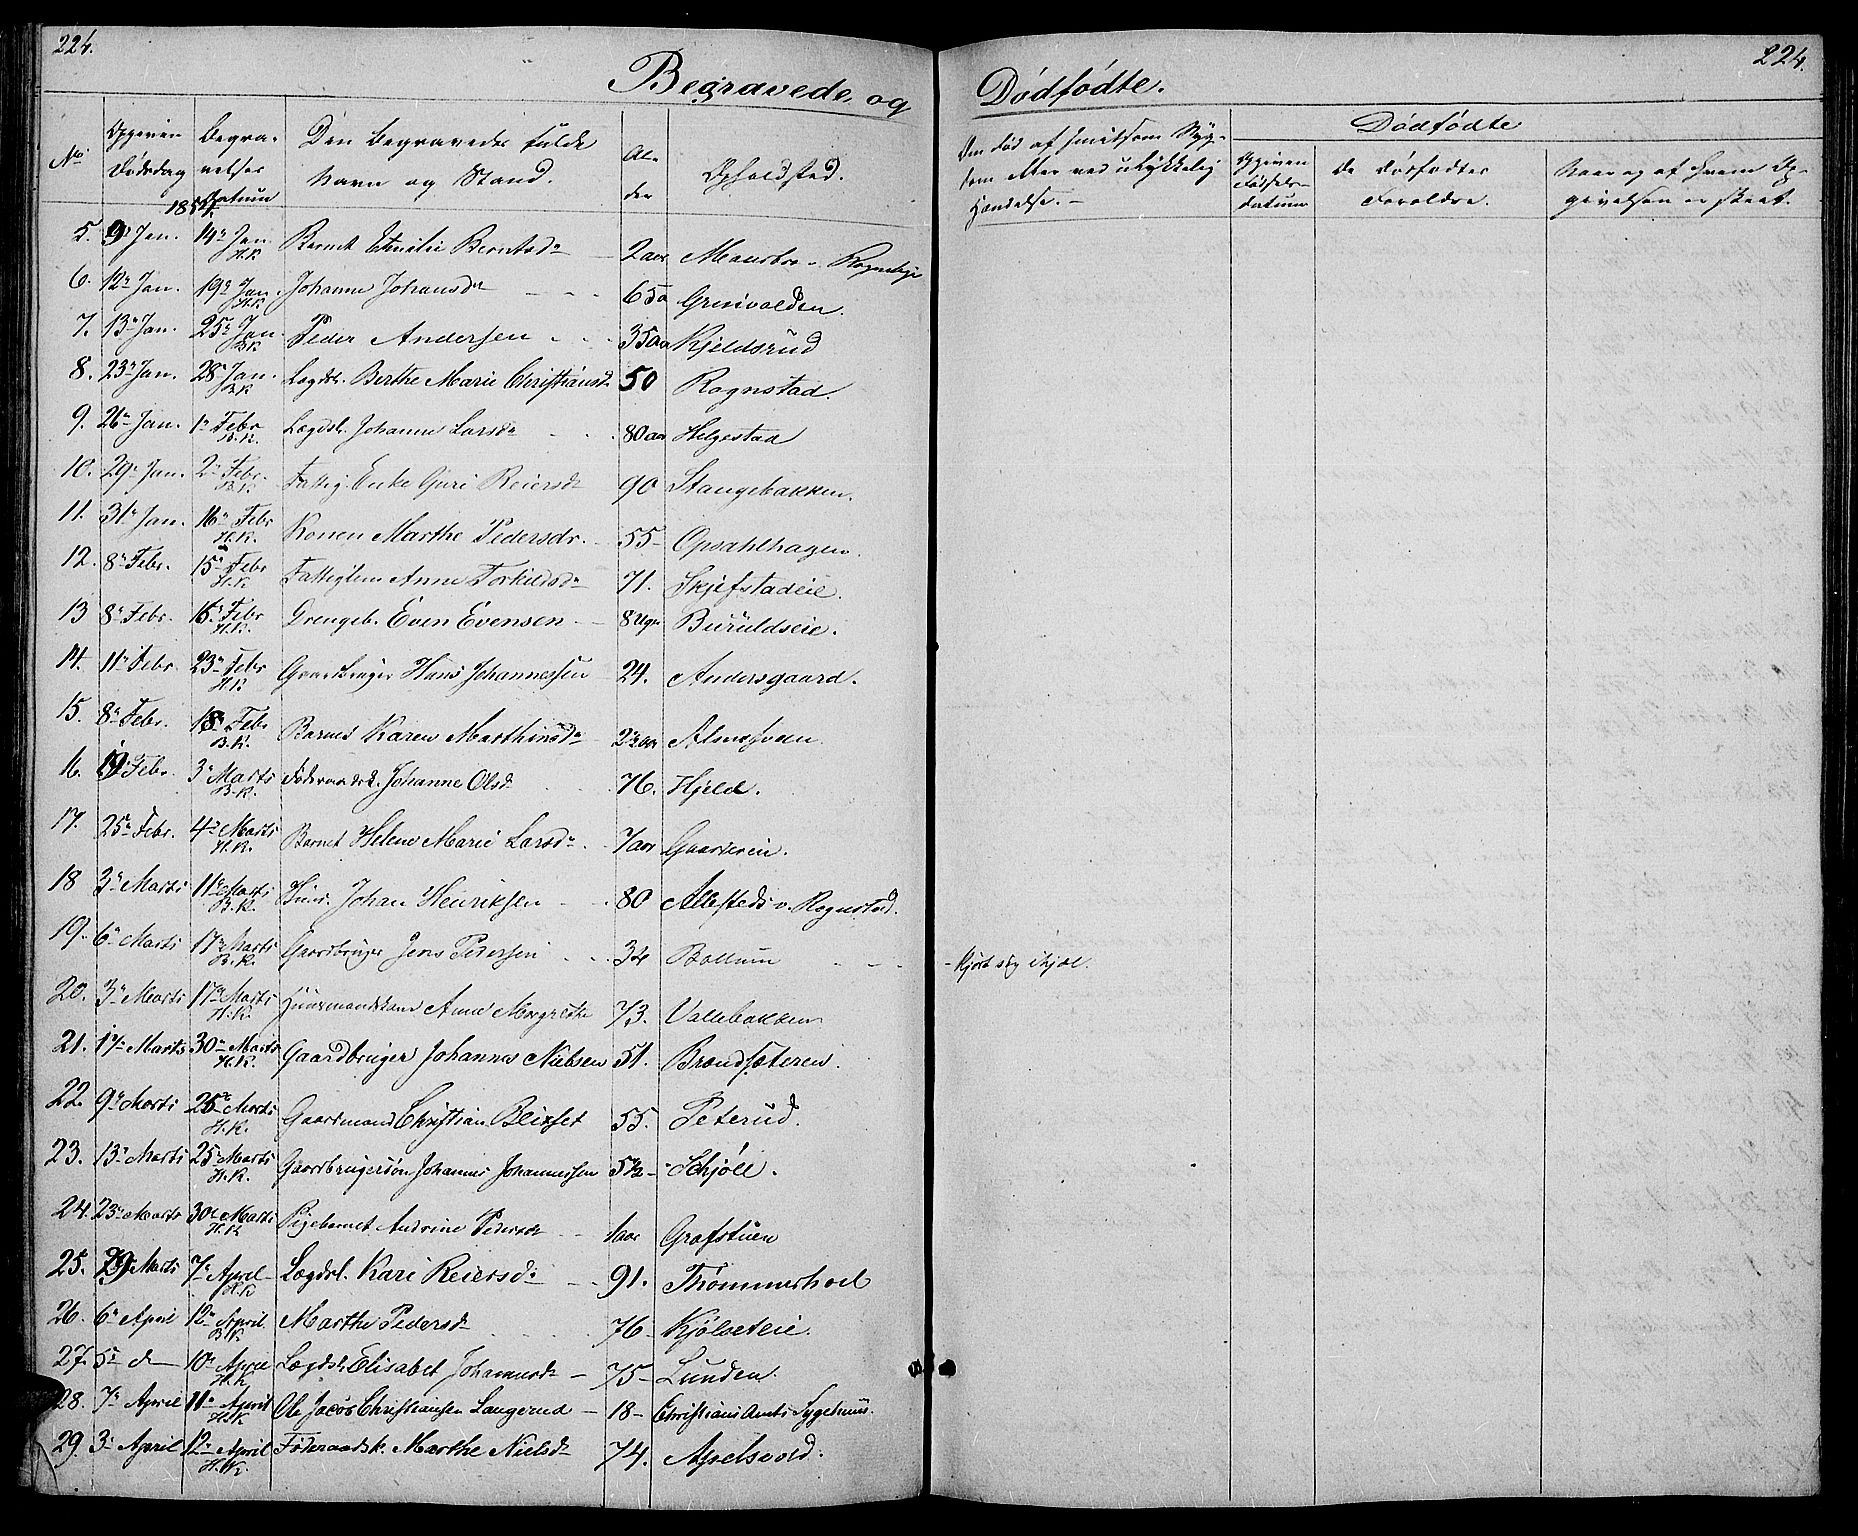 224.
224.
Begravede og Dødfødte.
No
Opgiven Dødsdag
Begravelses Datum
Den Begravedes fulde Navn og Stand.
Alder
Opholdsted.
Om død af smitsom Sygdom eller ved ulykkelig Hændelse. -
Dødfødte
Opgiven Fødsels-datum
De Dødfødtes Forældre.
Naar og af hvem Opgivelsen er skeet.
5. 9 Jan. 14 Jan. H.K Barnet Emilie Berntsdr 2 aar
6. 12 Jan. 19 Jan. H.K Johanne Johansdr 65 a Grinvolden.
7. 13 Jan. 25 Jan. B.K Peder Andersen 35 aar Kjeldsrud
8. 23 Jan. 28 Jan. B.K Lægdsl. Berthe Marie Christiansdr 50 Rognstad.
9. 26 Jan. 1 Febr B.K. Lægdsl. Johanne Larsdr 80 aar Helgestad
10. 29 Jan. 2 Febr. B.K. Fattig Enke Guri Reiersdr 90 Stangebakken.
11. 31 Jan. 16 Febr H.K. Konen Marthe Pedersdr. 55- Opsahlhagen.
12. 8 Febr. 15 Febr H.K Fattiglem Anne Torkildsdr 71. Skjefstadeie.
13 8 Febr. 15 Febr H.K. Drengeb. Even Evensen 8 Ugr Buruldseie.
14. 11 Febr 23 Febr H.K Gaardbruger Hans Johannessen 24. Andersgaard.
15. 8 Febr. 18 Febr B.K. Barnet Karen Marthinsdr 2 aar
16. 19 Febr. 3 Marts B.K. Føderaadsk. Johanne Olsdr 76. Hjeld.
17. 25 Febr. 4 Marts H.K. Barnet Helene Marie Larsdr 7 aar
18 3 Marts 11 Marts B.K. Huusm. Johan Henriksen 80 v. Rognstad.
19. 6 Marts 17 Marts B.K. Gaardbruger Jens Pedersen 34 Bollum - kjørt sig ihjel.
20. 3 Marts 17 Marts H.K. Huusmandskone Anne Margrethe 73. Vallebakken
21. 17 Marts 30 Marts H.K. Gaardbruger Johannes Nielsen 51. Brandsæteren.
22. 9 Marts 25 Marts H.K. Gaardmand Christian Blixset 55. Peterud.
23. 13 Marts 25 Marts H.K. Gaardbrugersøn Johannes Johannessen 5½ - Schjøll.
24. 23 Marts 30 Marts H.K Pigebarnet Andrine Pedersdr 1 aar Grafstuen
25. 29 Marts 7 April H.K Lægdsl. Kari Reiersdr 91. Trømmerhoel
26. 6 April 12 April B.K Marthe Pedersdr 76- Kjølseteie.
27. 5 d- 10 April H.K Lægdsl. Elisabet Johannesdr 75- Lunden.
28. 7 April 11 April H.K Ole Jacob Christiansen Langerud 18- Christians Amts Sygehuus.
29. 3 April 12 April H.K. Føderaadsk. Marthe Nielsdr 74. Apelsvold.